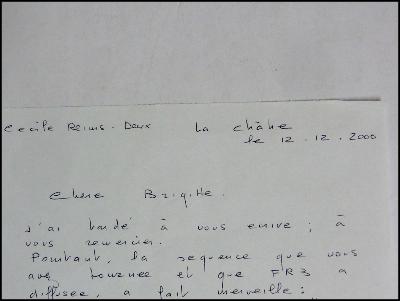 Cecile Reims - Deux
La Châtre
le 12.12.2000
Chere Brigitte.
J'ai tardé à vous ecrire ; à
vous remercier.
Pourtant, la sequence que vous
avez tournée et que FR3 a
diffusée, a fait merveille :